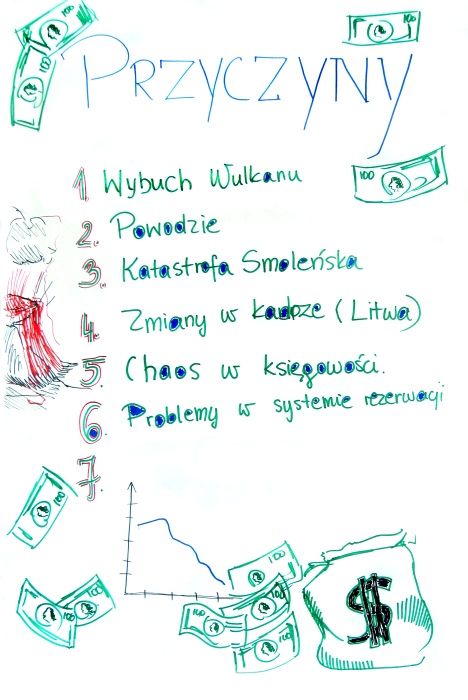 PRZYCZYNY
1. Wybuch Wulkanu
2. Powodzie
3. Katastrofa Smoleńska
4. Zmiany w kadrze (Litwa)
5. Chaos w księgowości.
6. Problemy w systemie rezerwacji
7.
100
100
100
100
100
100
100
100
100
100
100
$